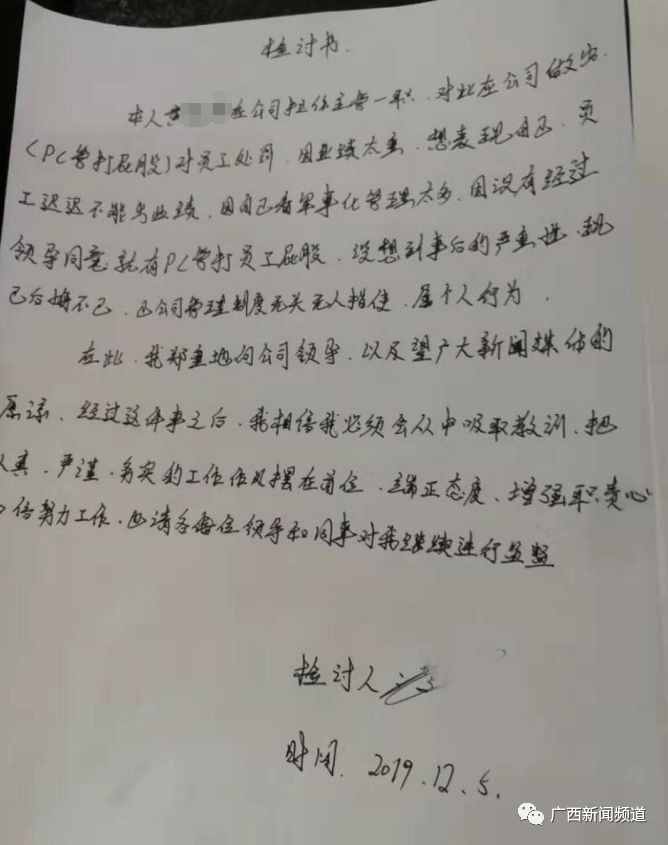 检讨书.
本人黄 在公司担任主管一职.对此在公司做出.
(PC管打屁股)对员工处罚.因业绩太差.想表现自己.员
工迟迟不能出业绩.因自己看军事化管理太多.因没有经过
领导同意就有PC管打员工屁股.没想到事后的严重性.现
已后悔不已.公司管理制度无关无人指使.属个人行为.
在此.我郑重地向公司领导.以及望广大新闻媒体的
原谅.经过这件事之后.我相信我必须会从中吸取教训.把
认真.严谨.务实的工作作风摆在首位.端正态度、增强职责心
倍努力工作.也请各每位领导和同事对我继续进行监督
检讨人
时间.2019.12.5.
广西新闻频道